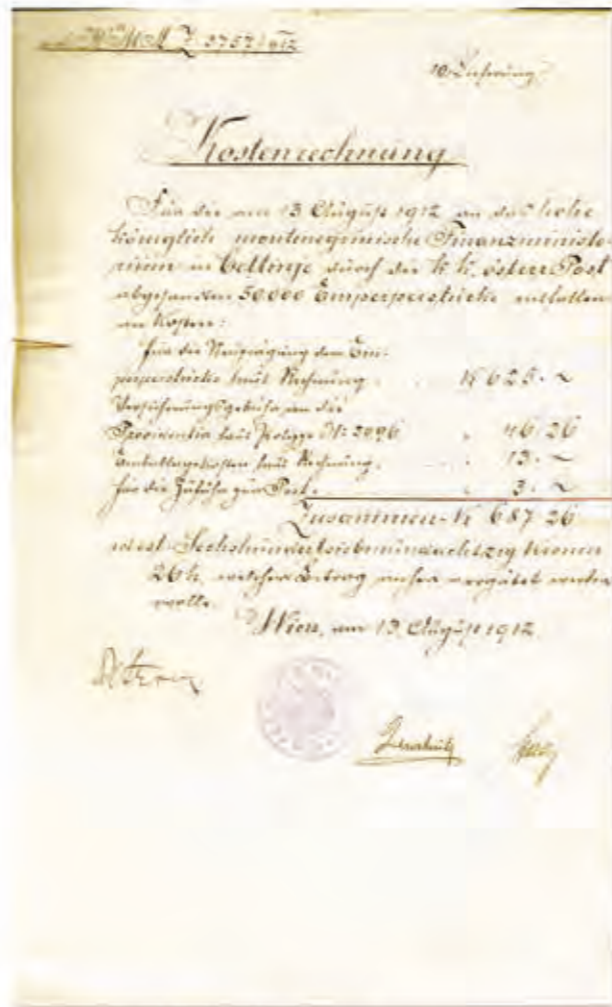 Z. 3757/1912
Kostenrechnung
Für die am 13. August 1912 an das hohe
königlich montenegrinische Finanzministe-
rium in Cettinje durch die k.k. österr. Post
abgesandten 50.000 Einperperstücke entfallen
an Kosten:
für die Neuprägung der Ein-
perperstücke laut Rechnung . . K 625.~
Versicherungsgebühr an die
Providentia laut Polizze Nr. 2096 " 46.26
Emballagekosten laut Rechnung. . . . 13.~
für die Zufuhr zur Post . " 3.~
Zusammen K 687.26
Sechshundertsiebenundachtzig Kronen
26 h, welcher Betrag anher vergütet werden
wolle.
Wien, am 13. August 1912.